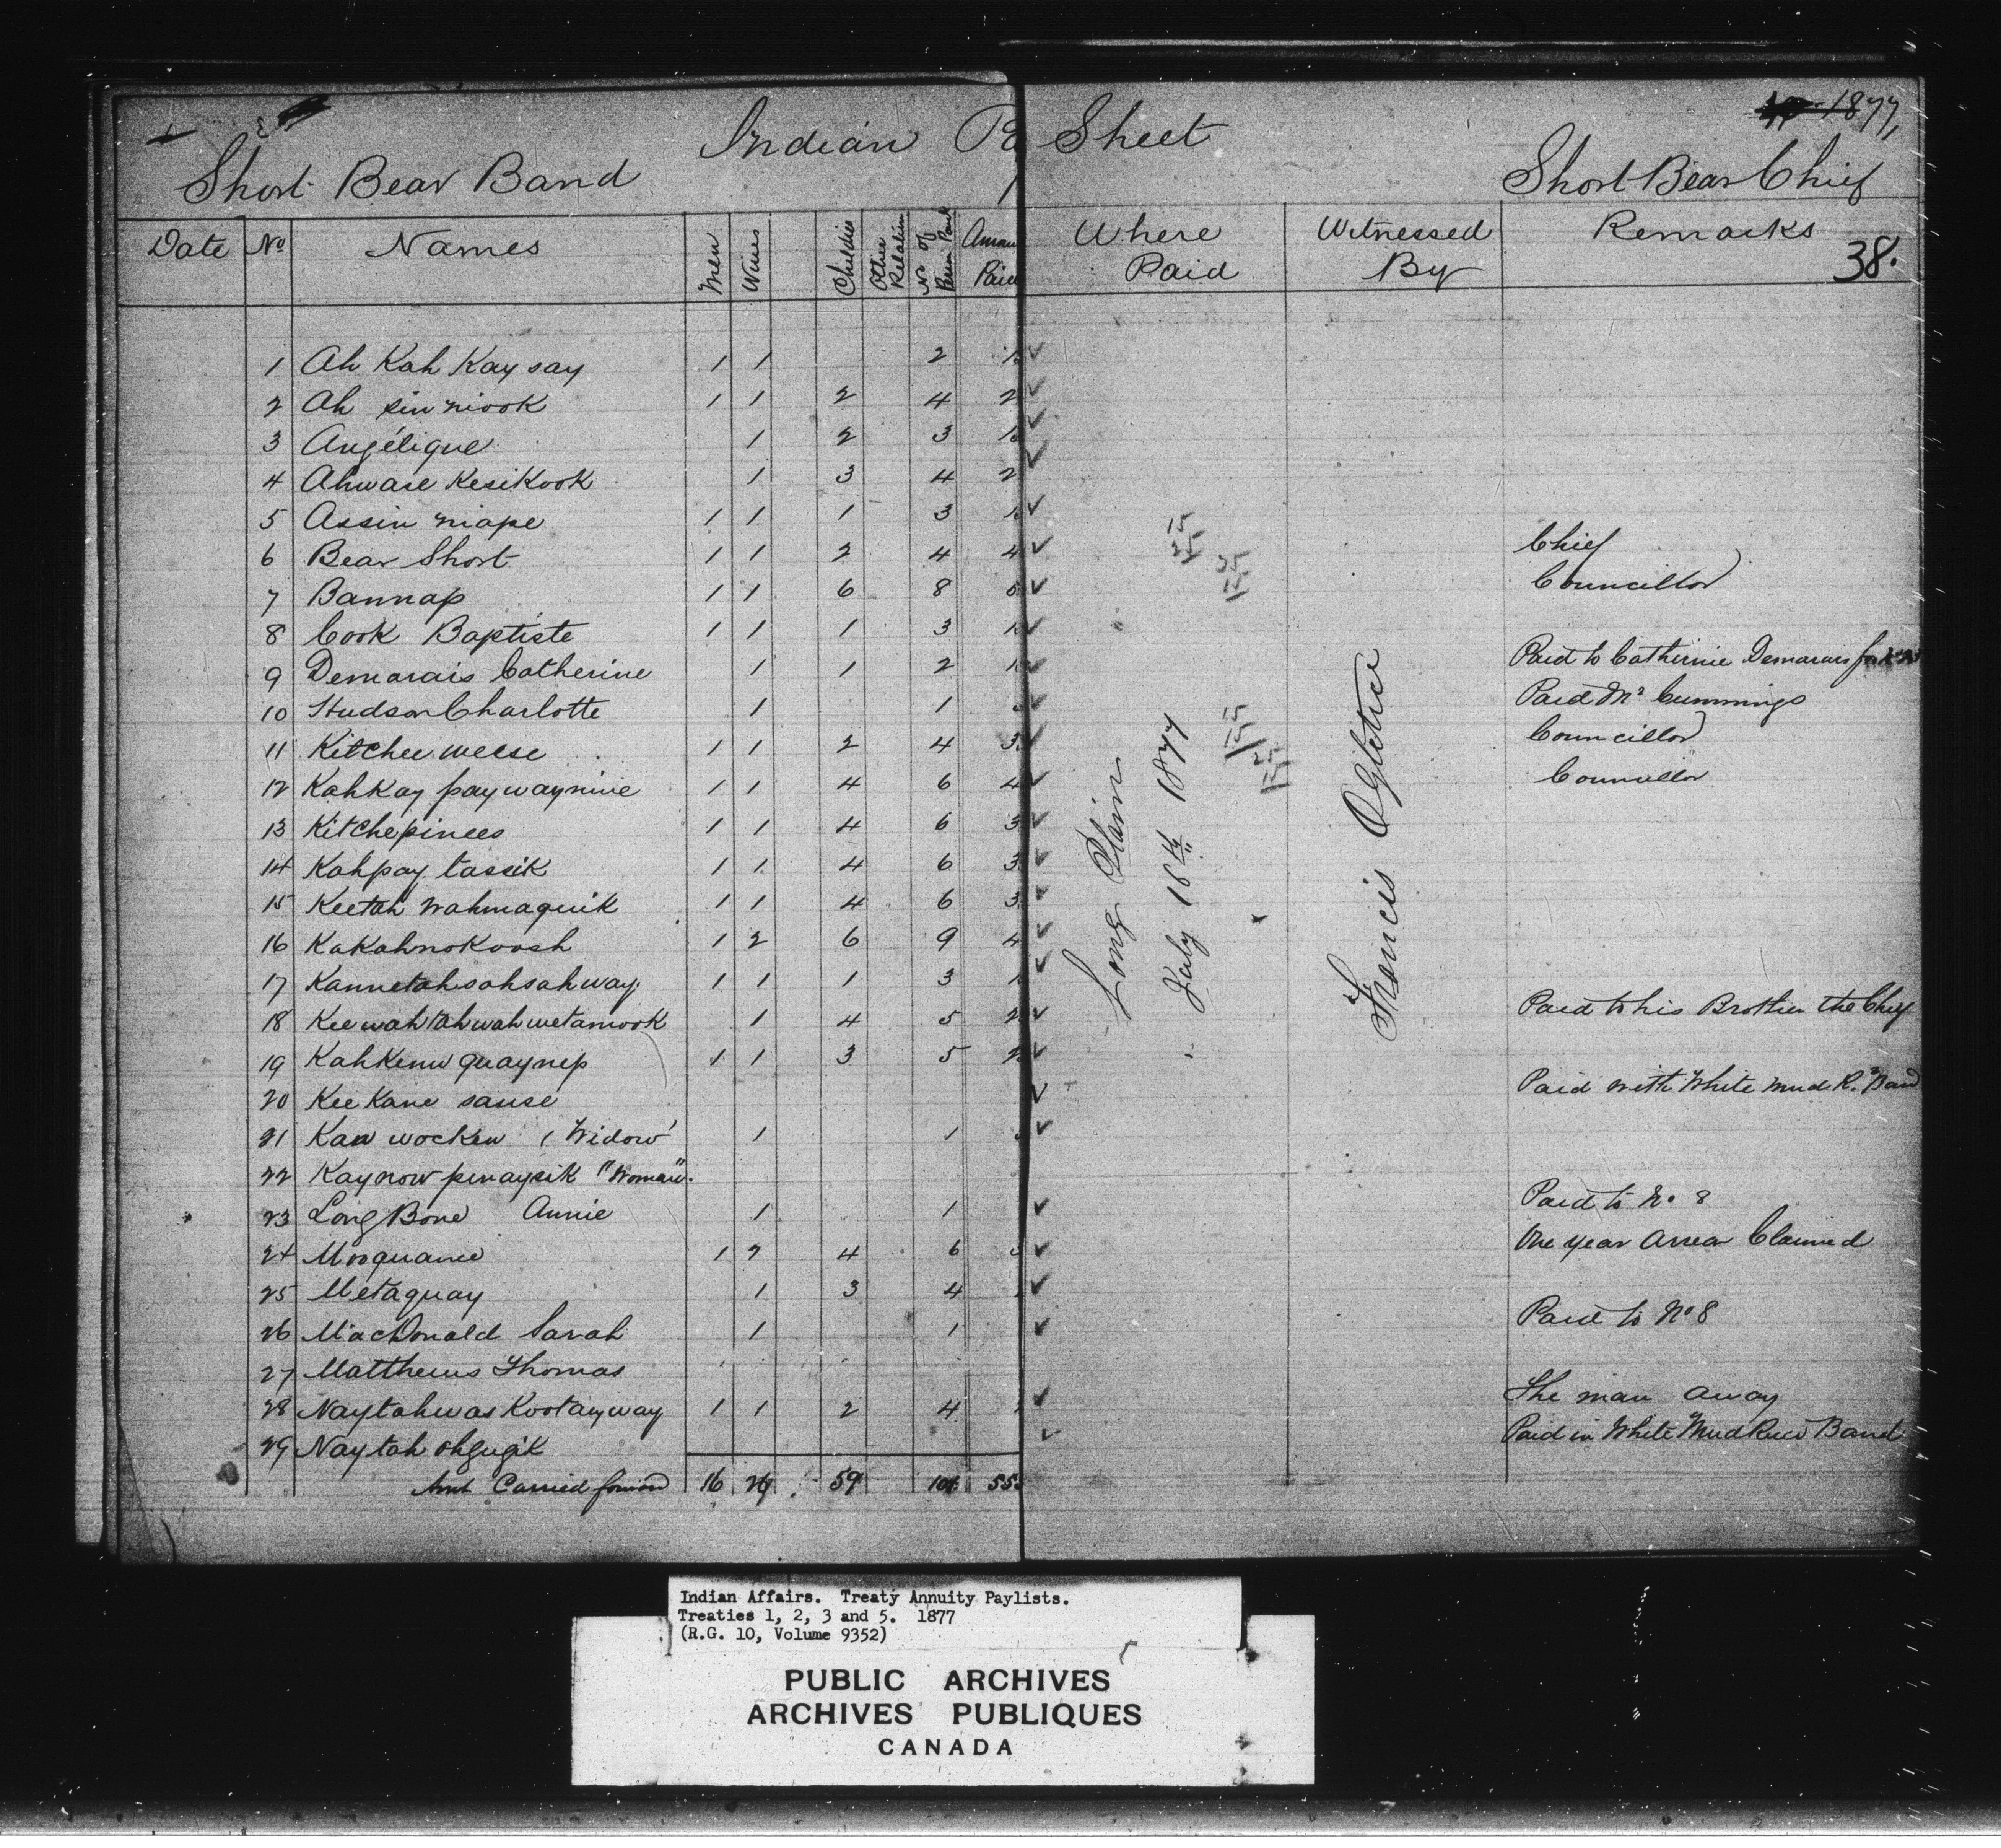 1877,
Indian Pa Sheet
Short Bear Band Short Bear Chief
Date No Names Men Wives Children Other Relation No of Persn Paid Amou Paid Where Paid Witnessed By Remarks 38.
1 Ah Kah Kay say 1 1 2
2 Ah sin niook 1 1 2 4 2
3 Angélique 1 2 3
4 Ahwase Kesikook 1 3 4 2
5 Assin niape 1 1 1 3
6 Bear Short 1 1 2 4 4 Chief
7 Bannap 1 1 6 8 Councillor
8 Cook Baptiste 1 1 1 3
9 Demarais Catherine 1 1 2 Paid to Catherine Demarais
10 Hudson Charlotte 1 1 Paid Mr Cummings
11 Kitchee weese 1 1 2 4 3 Councillor
12 Kahkay paywaynine 1 1 4 6 4 Councillor
13 Kitchepinees 1 1 4 6 3
14 Kahpay tassik 1 1 4 6 3
15 Keetah wahmaquik 1 1 4 6 3
16 Kakahnokoosh 1 2 6 9 4
17 Kannetahsahsahway 1 1 1 3 1
18 Keewahtahwahwetamook 1 4 5 2 Paid to his Brother the Chief
19 Kahkenw quaynep 1 1 3 5 2
20 Kee Kane sause Paid with White Mud R. Band
21 Kaw wocken (Widow 1 1
22 Kaynow penaysik "Woman".
23 Long Bone Annie 1 1 Paid to No 8
24 Mooquanie 1 2 4 6 One year Arrear Claimed
25 Metaquay 1 3 4
26 MacDonald Sarah 1 1 Paid to No 8
27 Matthews Thomas
28 Naytahwas Kootayway 1 1 2 4 The man away
29 Naytah ohgugik Paid in White Mud River Band
Amt Carried forward 16 59 55
Long Plain
July 18th 1877
Francis Ogletree
Indian Affairs. Treaty Annuity Paylists.
Treaties 1, 2, 3 and 5. 1877
(R.G. 10, Volume 9352)
PUBLIC ARCHIVES
ARCHIVES PUBLIQUES
CANADA